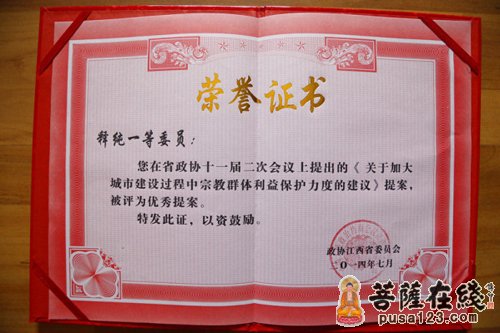 荣誉证书
释纯一等委员：
您在省政协十一届二次会议上提出的《关于加大
城市建设过程中宗教群体利益保护力度的建议》提案，
被评为优秀提案。
特发此证，以资鼓励。
政协江西省委员会
二〇一四年七月
菩薩在线
pusa123.com